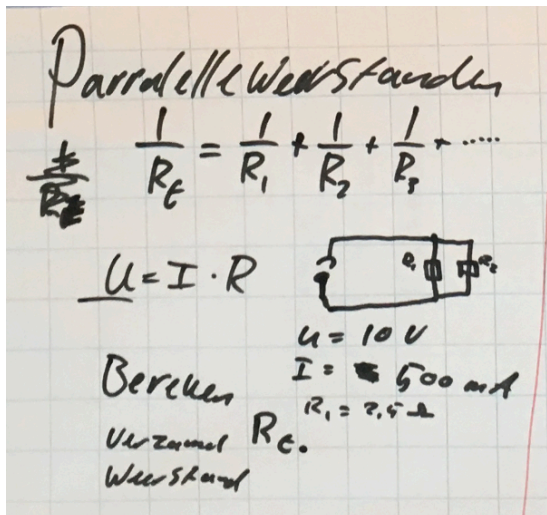 Parralelle Weerstanden
1/Rt = 1/R1 + 1/R2 + 1/R3 + .....
U = I · R
R1 R2
U = 10 V
I = 500 mA
R1 = 2,5 Ω
Bereken
Verzamel Rt.
Weerstand